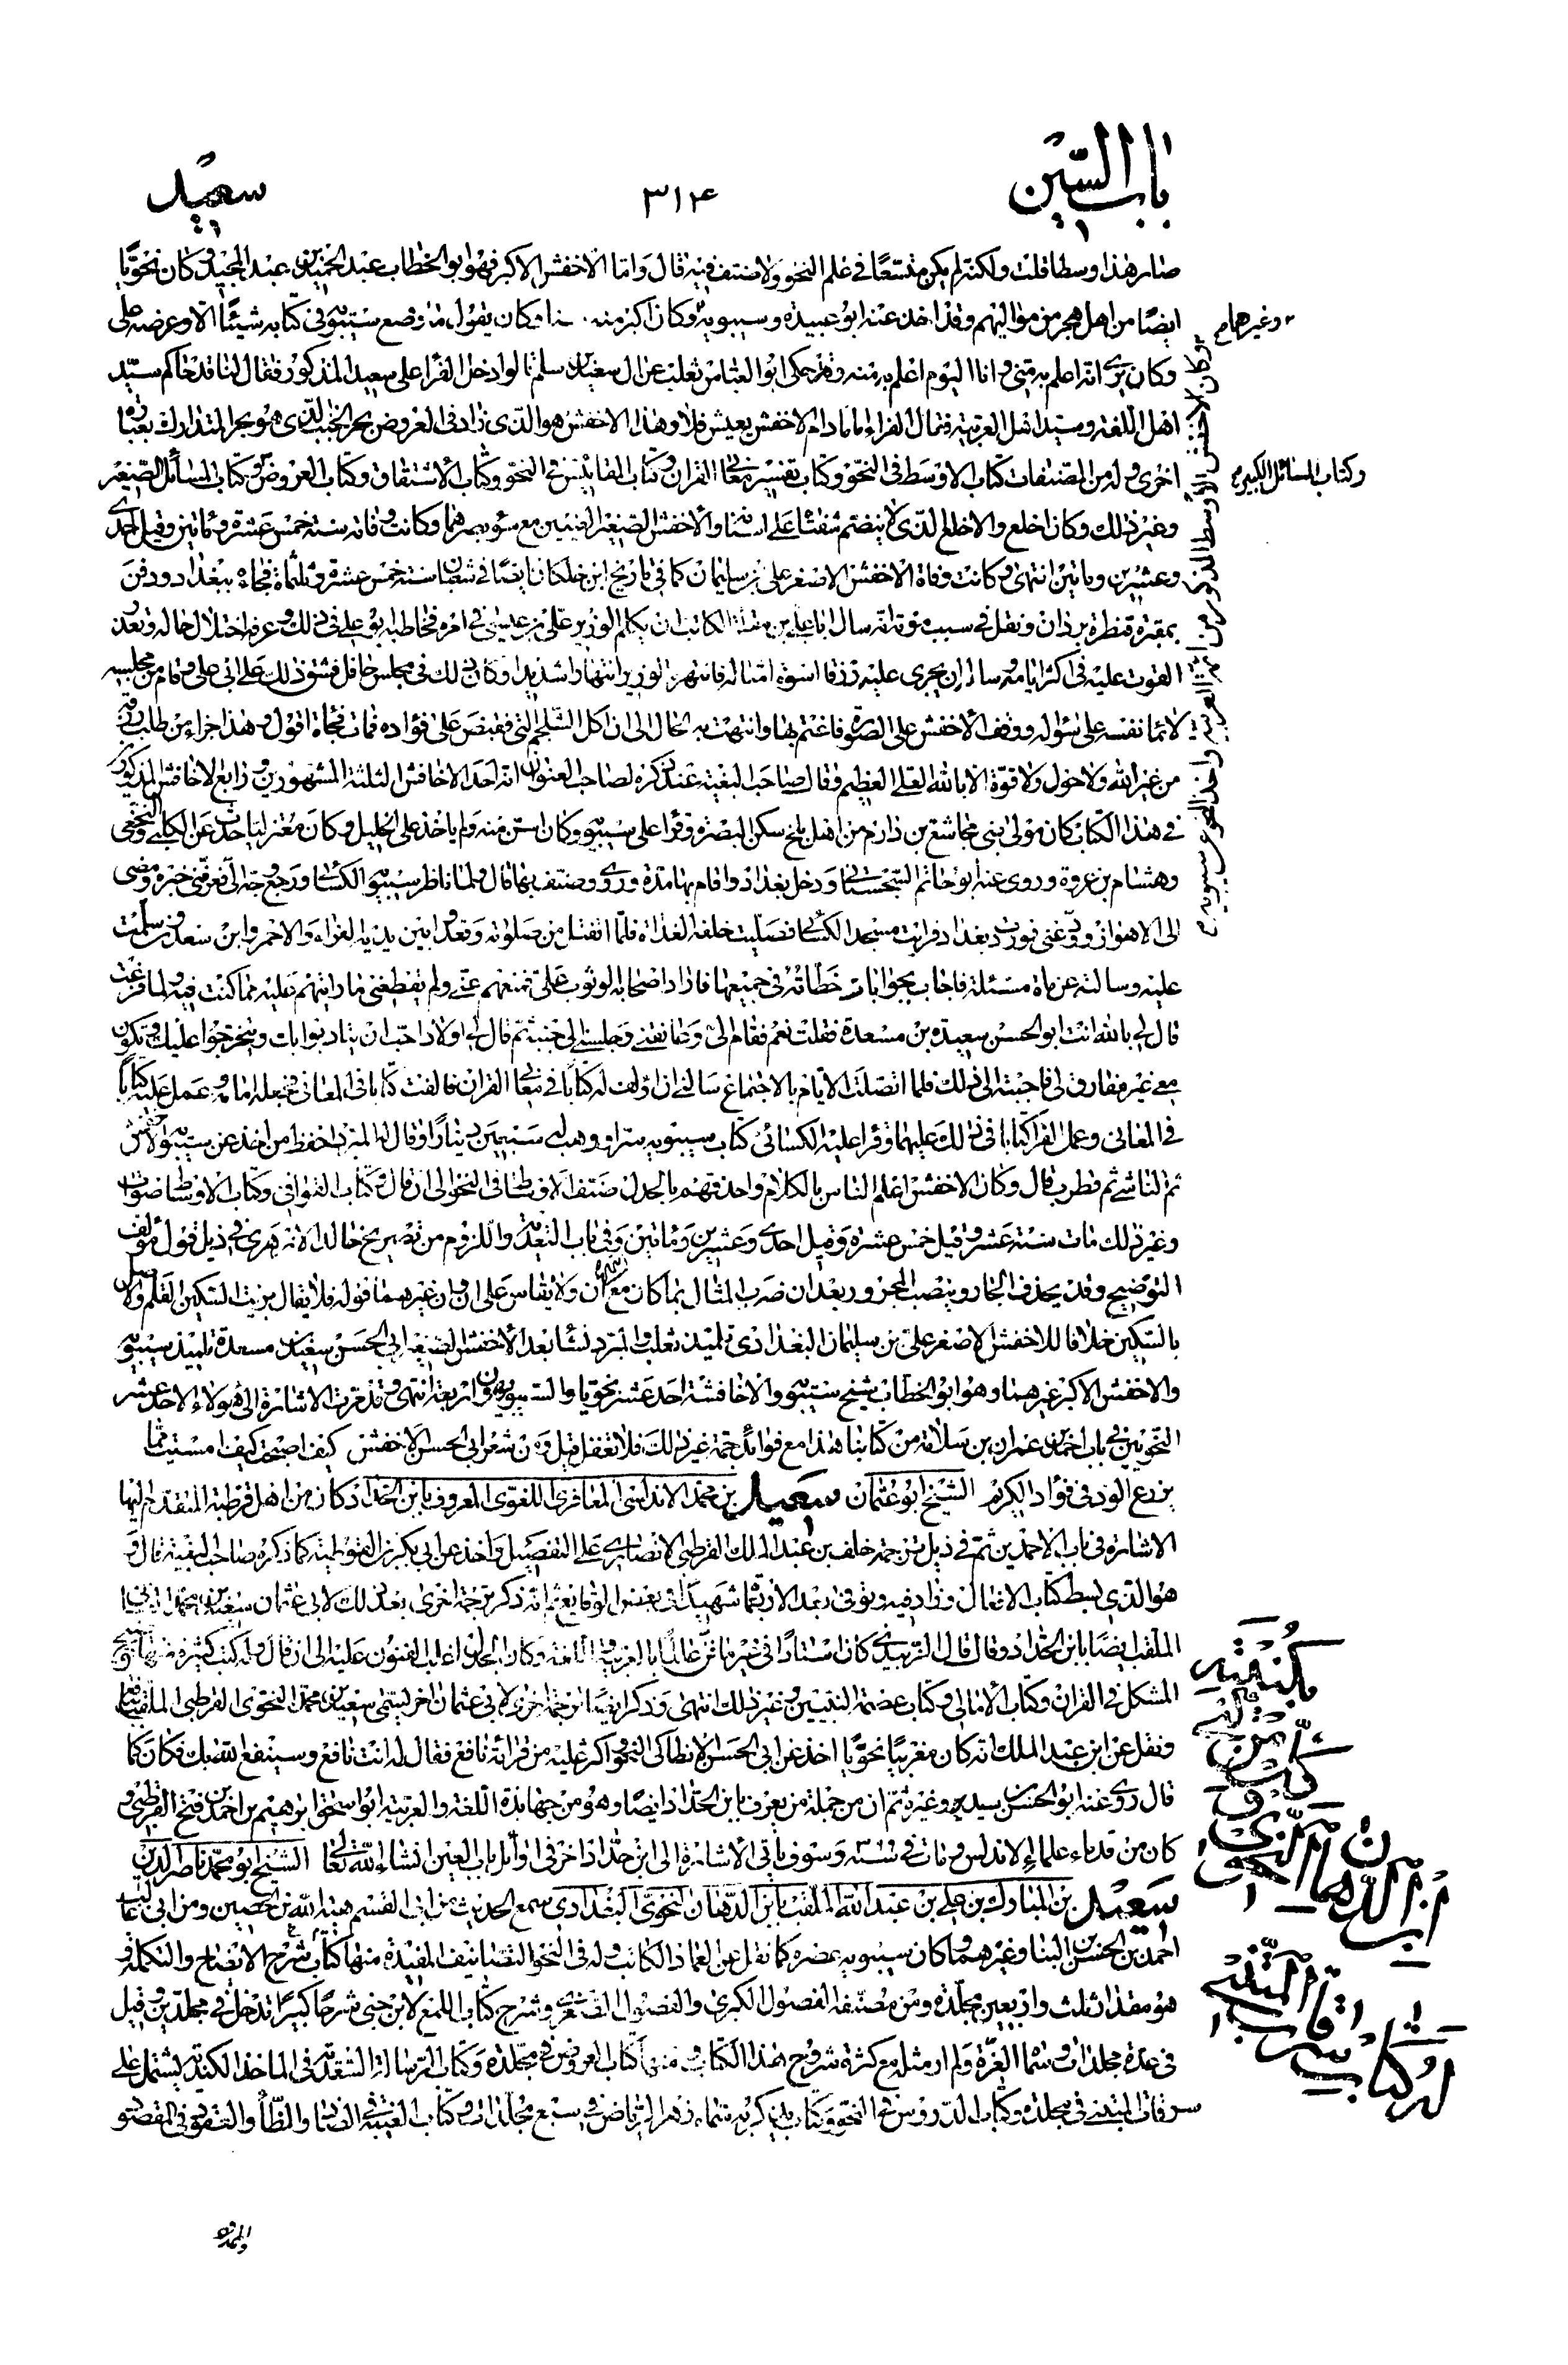 باب السين
٣١۴
سعيد
صار هذا وسطا قلت ولكنه لم يكن متسعا في علم النحو ولا صنف فيه قال واما الاخفش الاكبر فهو ابو الخطاب عبد الحميد بن عبد المجيد وكان نحويا
ايضا من اهل هجر من مواليهم وقد اخذ عنه ابو عبيدة وسيبويه وكان اكبر منه وكان يقول ما وضع سيبويه في كتابه شيئا الا وعرضه على
وغيرهما
وكان يرى انه اعلم به مني وانا اليوم اعلم به منه وقد حكى ابو العباس ثعلب عن ال سعيد بن سلم قالوا دخل الفراء على سعيد المذكور فقال لنا قد جاءكم سيد
اهل اللغة وسيد اهل العربية فقال الفراء اما مادام الاخفش يعيش فلا وهذا الاخفش هو الذي زاد في العروض بحر الخبب الذي هو بحر المتدارك بعبارة
اخرى وله من المصنفات كتاب الاوسط في النحو وكتاب تفسير معاني القران وكتاب المقائيس في النحو وكتاب الاشتقاق وكتاب العروض وكتاب المسائل الصغير
وكتاب المسائل الكبير
وغير ذلك وكان اخلع والاخلع الذي لا ينضم شفتاه على اسنانه والاخفش الصغير العينين مع سوء بصرهما وكانت وفاته سنة خمس عشرة ومائتين وقيل احدى
وعشرين ومائتين انتهى وكانت وفاة الاخفش الاصغر علي بن سليمان كما في تاريخ ابن خلكان ايضا في شعبان سنة خمس عشرة وثلثمائة فجاة ببغداد ودفن
بمقبرة قنطرة بردان ونقل في سبب موته انه سال ابا علي بن مقلة الكاتب ان يكلم الوزير علي بن عيسى في امره فخاطبه ابو علي في ذلك وعرفه اختلال حاله وتعذر
القوت عليه في اكثر ايامه وساله ان يجري عليه رزقا اسوة امثاله فانتهره الوزير انتهارا شديدا وكان ذلك في مجلس حافل فشق ذلك على ابي علي وقام من مجلسه
لائما نفسه على سؤاله ووقف الاخفش على الصورة فاغتم بها وانتهت به الحال الى ان اكل الشلجم الني فقبض على فؤاده فمات فجاة اقول وهذا جزاء من طلب رزقه
من غير الله ولا حول ولا قوة الا بالله العلي العظيم وقال صاحب البغية عند ذكره لصاحب العنوان انه احد الاخافش الثلثة المشهورين ورابع الاخافش المذكور
في هذا الكتاب كان مولى بني مجاشع بن دارم من اهل بلخ سكن البصرة وقرا على سيبويه وكان اسن منه ولم ياخذ على الخليل وكان معتزليا حدث عن الكلبي والنخعي
وهشام بن عروة وروى عنه ابو حاتم السجستاني ودخل بغداد واقام بها مدة وروى وصنف بها قال ولما ناظر سيبويه الكسائي ورجع وجه الي فعرفني خبره ومضى
الى الاهواز وودعني فوردت بغداد فرايت مسجد الكسائي فصليت خلفه الغداة فلما انفتل من صلوته وقعد وبين يديه الفراء والاحمر وابن سعدان سلمت
عليه وسالته عن ماة مسئلة فاجاب بجوابات خطاته في جميعها فاراد اصحابه الوثوب علي فمنعهم عني ولم يقطعني ما رايتهم عليه مما كنت فيه ولما فرغت
قال لي بالله انت ابو الحسن سعيد بن مسعدة فقلت نعم فقام الي وعانقني وجلسني الى جنبه ثم قال لي اولاد احب ان يتادبوا بك ويتخرجوا عليك وتكون
معي غير مفارق لي فاجبته الى ذلك فلما اتصلت الايام بالاجتماع سالني ان اؤلف له كتابا في معاني القران فالفت كتابا في المعاني فجعله امامه وعمل عليه كتابا
في المعاني وعمل الفراء كتابا في ذلك عليهما وقرا عليه الكسائي كتاب سيبويه سرا ووهب له سبعين دينارا وقال المبرد احفظ من اخذ عن سيبويه الاخفش
ثم الناشي ثم قطرب قال وكان الاخفش اعلم الناس بالكلام واحذقهم بالجدل صنف الاوسط في النحو الى ان قال وكتاب القوافي وكتاب الاوسط الاصوات
وغير ذلك مات سنة عشر وقيل خمس عشرة وقيل احدى وعشرين ومائتين وفي باب التعدية واللزوم من تصريح خالد الازهري في ذيل قول مؤلف
التوضيح وقد يحذف الجار وينصب المجرور بعد ان ضرب المثال بما كان مع ان وان ولا يقاس على ان وان غيرهما قوله فلا يقال بريت السكين القلم والاصل
بالسكين خلافا للاخفش الاصغر علي بن سليمان البغدادي تلميذ ثعلب والمبرد نشا بعد الاخفش الصغير ابي الحسن سعيد بن مسعدة تلميذ سيبويه
والاخفش الاكبر غيرهما وهو ابو الخطاب شيخ سيبويه والاخافشة احد عشر نحويا والسيبويهون اربعة انتهى وقد مرت الاشارة الى هؤلاء الاحد عشر
النحويين في باب احمد بن عمران بن سلامة من كتابنا هذا مع فوائد جمة غير ذلك فلا تغفل قيل ومن شعر ابي الحسن الاخفش كيف اصبحت كيف امسيت مما
يزرع الود في فؤاد الكريم الشيخ ابو عثمان سعيد بن محمد الاندلسي المعافري اللغوي المعروف بابن الحداد كان من اهل قرطبة المتقدم اليها
الاشارة في باب الاحمدين ثم في ذيل ترجمة خلف بن عبد الملك القرطبي الانصاري على التفصيل واخذ عن ابي بكر بن القوطية كما ذكره صاحب البغية قال و
هو الذي بسط كتاب الافعال وزاد فيه وتوفى بعد الاربعمائة شهيدا في بعض الوقايع ثم انه ذكر ترجمة اخرى بعد ذلك لابي عثمان سعيد بن محمد
الملقب ايضا بابن الحداد وقال قال الزبيدي كان استادا في غير ما فن عالما بالعربية واللغة وكان الجدل اغلب الفنون عليه الى ان قال وله كتب كثيرة منها توضيح
المشكل في القران وكتاب الامالي وكتاب عصمة النبيين وغير ذلك انتهى وذكر ايضا ترجمة اخرى لابي عثمان اخر يسمى سعيد بن محمد النحوي القرطبي الملقب بنافع
ونقل عن ابن عبد الملك انه كان مغربيا نحويا اخذ عن ابي الحسن الانطاكي النحو اكثر عليه من قرائة نافع فقال له انت نافع وسينفع الله بك فكان كما
قال روى عنه ابو الحسن بن سيده وغيره ثم ان من جملة من يعرف بابن الحداد ايضا وهو من جهابذة اللغة والعربية ابو اسحق ابراهيم بن احمد بن فتح القرطبي و
كان من قدماء علماء الاندلس ومات في سنة وسوف ياتي الاشارة الى ابن حداد اخر في اوائل باب العين انشاء الله تعالى الشيخ ابو محمد ناصر الدين
سعيد بن المبارك بن علي بن عبد الله الملقب بابن الدهان النحوي البغدادي سمع الحديث من ابي القسم هبة الله بن الحصين ومن ابي غالب
احمد بن الحسن بن البنا وغيرهما وكان سيبويه عصره كما نقل عن العماد الكاتب وله في النحو التصانيف المفيدة منها كتاب شرح الايضاح والتكملة و
هو مقدار ثلث واربعين مجلدة ومن مصنفه الفصول الكبرى والفصول الصغرى وشرح كتاب اللمع لابن جني شرحا كبيرا تدخل في مجلدين وقيل
في عدة مجلدات وسماه الغرة ولم ار مثله مع كثرة شروح هذا الكتاب ومنها كتاب العروض في مجلدة وكتاب الرسالة السعيدية في الماخذ الكندية يشتمل على
سرقات المتنبي في مجلدة وكتاب الدروس في النحو وكتاب تذكرته سماه زهر الرياض في سبع مجلدات وكتاب الغنية في الضاد والظاء والعقود في المقصور
وكان الاخفش الاوسط المذكور من ائمة العربية واخذ النحو عن سيبويه
ابن الدهان النحوي
له كتاب سرقات المتنبي
والممدود